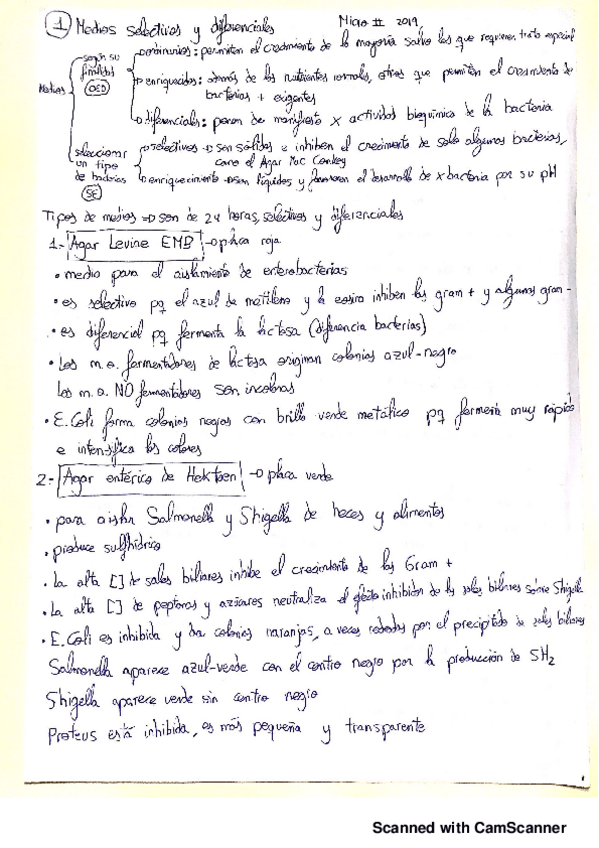 ① Medios selectivos y diferenciales Micro II 2019
Medios
según su finalidad (OED)
→ ordinarios: permiten el crecimiento de la mayoría salvo los que requieren trato especial
→ enriquecidos: además de los nutrientes normales, otros que permiten el crecimiento de
bacterias + exigentes
→ diferenciales: ponen de manifiesto x actividad bioquímica de la bacteria
seleccionar un tipo de bacterias (SE)
→ selectivos → son sólidos e inhiben el crecimiento de solo algunas bacterias,
como el Agar Mac Conkey
→ enriquecimiento → son líquidos y favorecen el desarrollo de x bacteria por su pH
Tipos de medios => son de 24 horas, selectivos y diferenciales
1.- Agar Levine EMB → placa roja
• medio para el aislamiento de enterobacterias
• es selectivo pq el azul de metileno y la eosina inhiben las gram + y algunas gram -
• es diferencial pq fermenta la lactosa (diferencia bacterias)
• Los m.o. fermentadores de lactosa originan colonias azul-negro
Los m.o. NO fermentadores son incoloras
• E. Coli forma colonias negras con brillo verde metálico pq fermenta muy rápido
e intensifica los colores
2.- Agar entérico de Hektoen → placa verde
• para aislar Salmonella y Shigella de heces y alimentos
• produce sulfhídrico
• La alta [] de sales biliares inhibe el crecimiento de las Gram +
• La alta [] de peptonas y azúcares neutraliza el efecto inhibidor de las sales biliares sobre Shigella
• E. Coli es inhibida y da colonias naranjas, a veces rodeadas por el precipitado de sales biliares
Salmonella aparece azul-verde con el centro negro por la producción de SH2
Shigella aparece verde sin centro negro
Proteus está inhibida, es más pequeña y transparente
Scanned with CamScanner